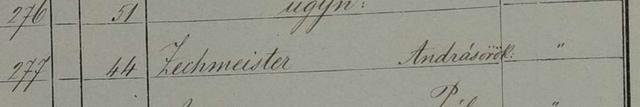 276 51 ugyn:
277 44 Zechmeister Andrásörök: "
Pál "